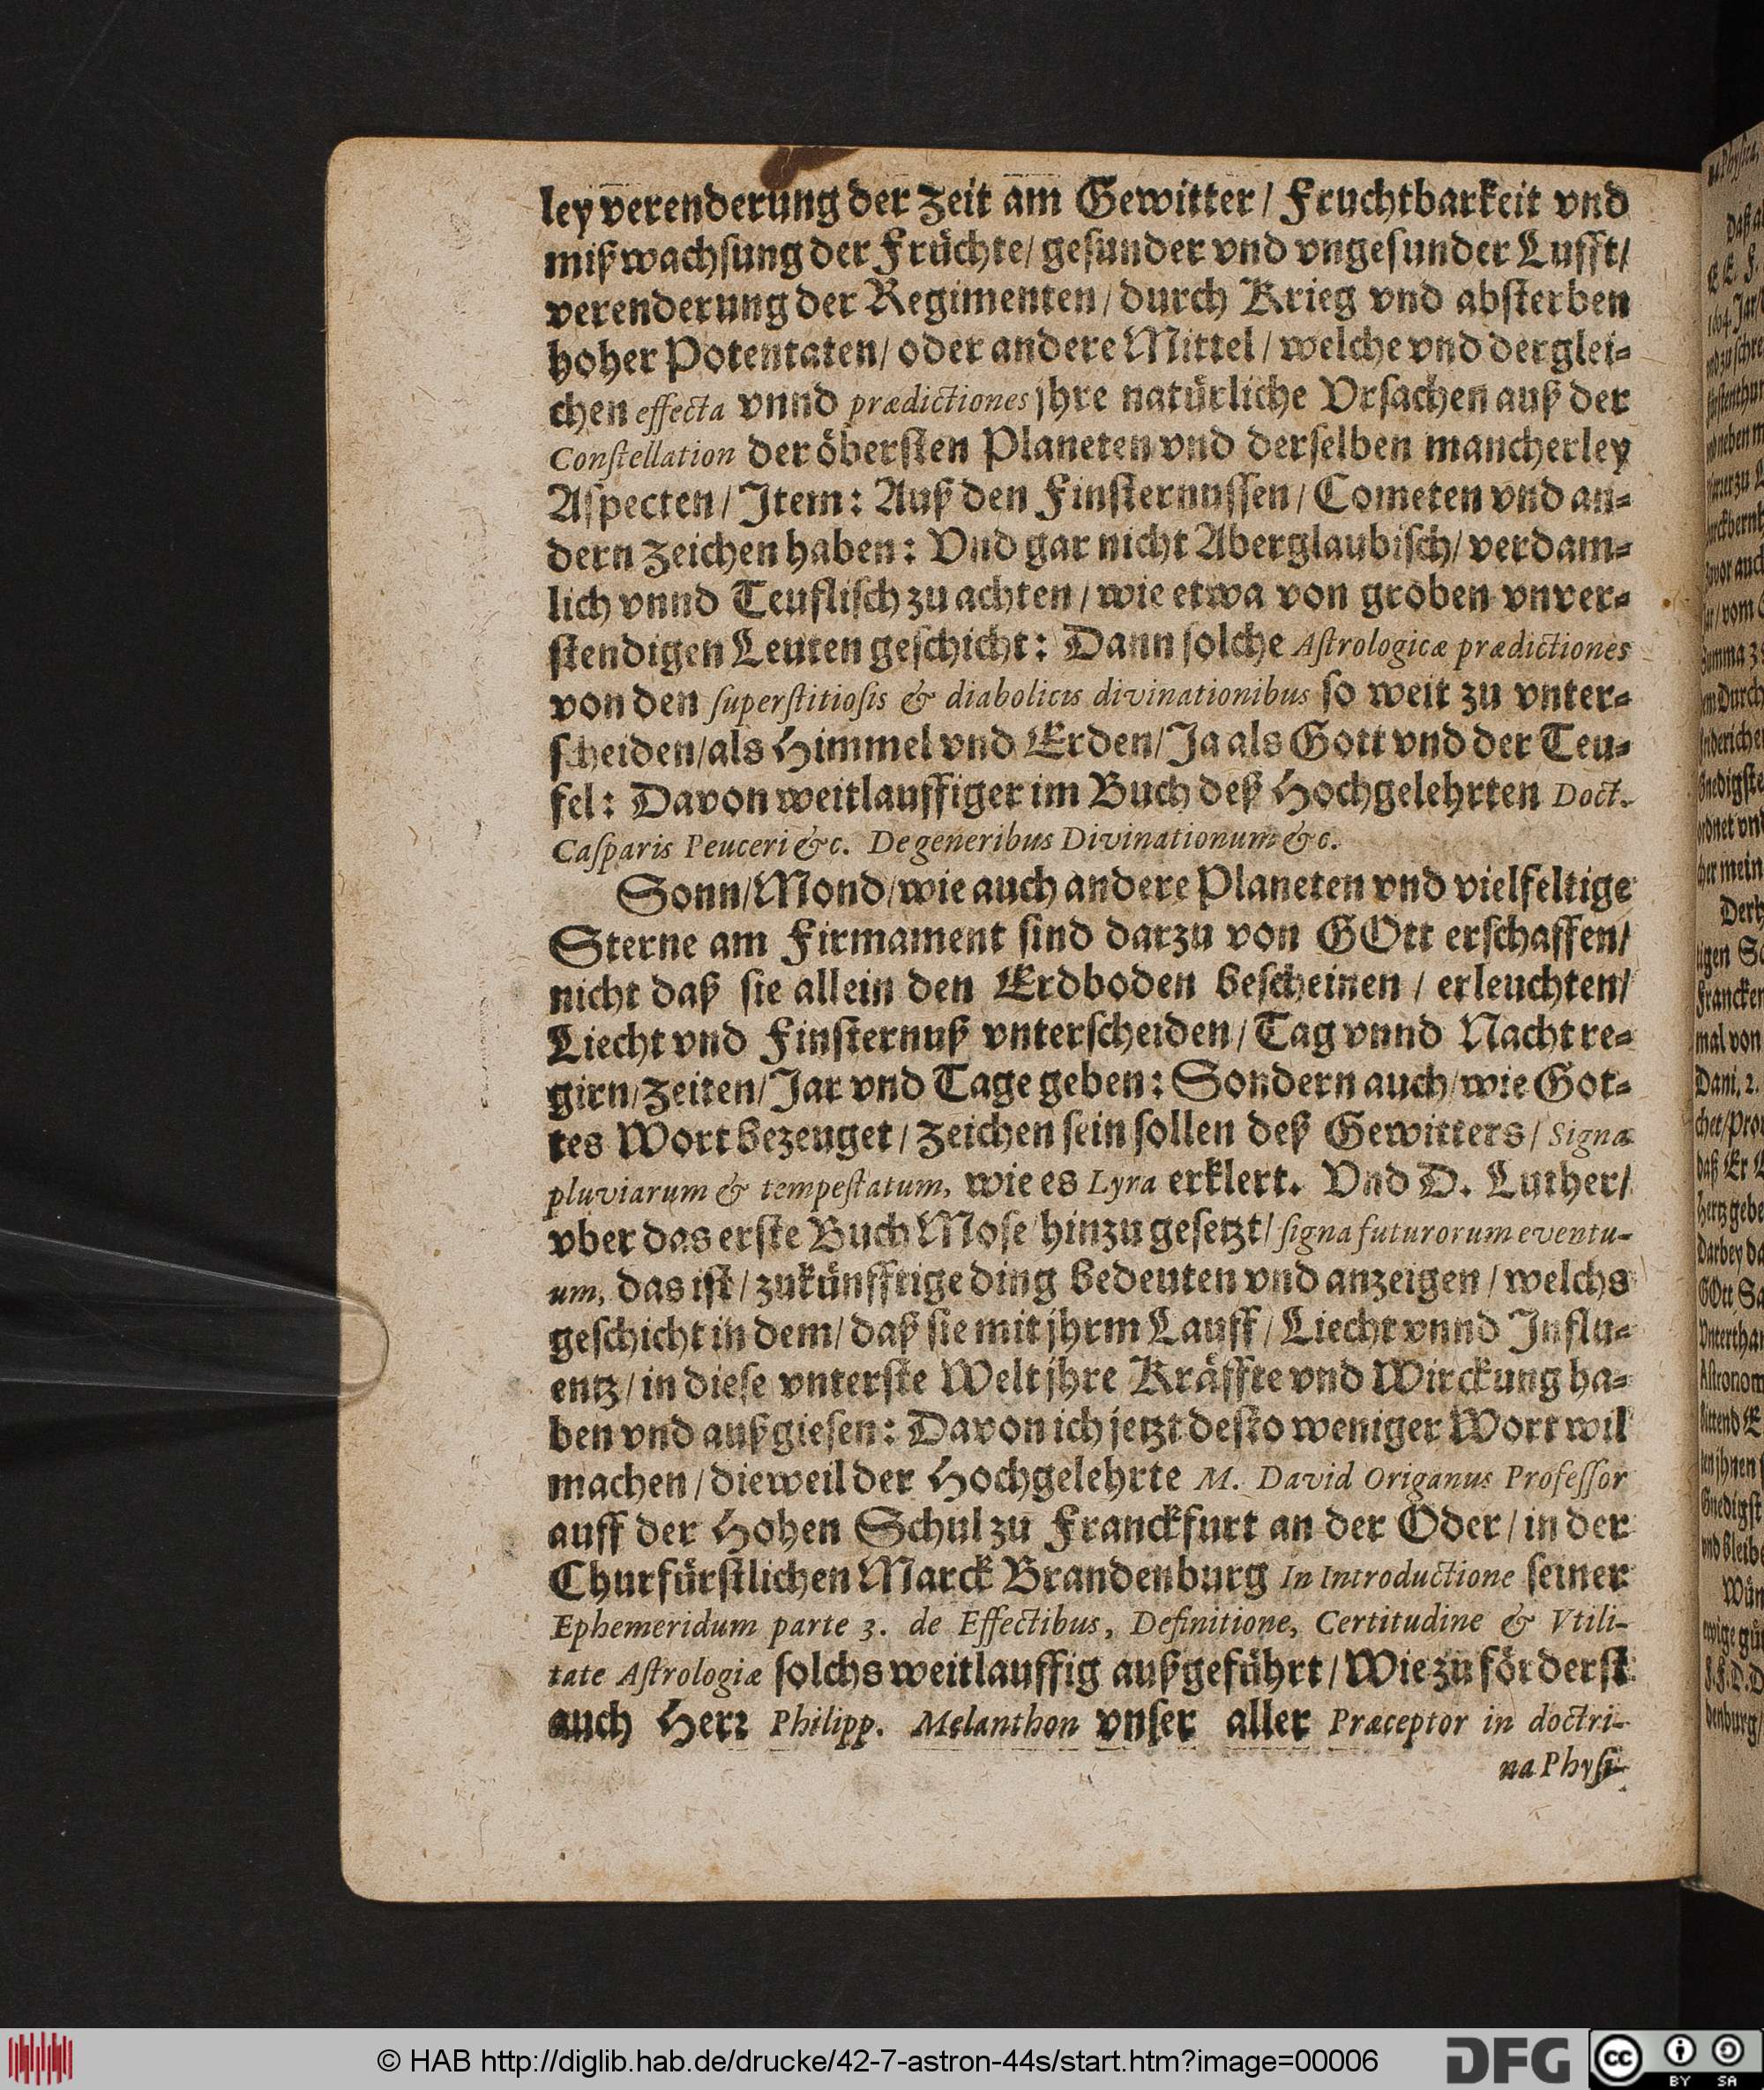 ley verenderung der Zeit am Gewitter / Fruchtbarkeit vnd
mißwachſung der Früchte / geſunder vnd vngeſunder Lufft /
verenderung der Regimenten / durch Krieg vnd abſterben
hoher Potentaten / oder andere Mittel / welche vnd derglei⸗
chen effecta vnnd prædictiones jhre natürliche Vrſachen auß der
Conſtellation der öberſten Planeten vnd derſelben mancherley
Aſpecten / Item: Auß den Finſternuſſen / Cometen vnd an⸗
dern Zeichen haben: Vnd gar nicht Aberglaubiſch / verdam⸗
lich vnnd Teufliſch zu achten / wie etwa von groben vnver⸗
ſtendigen Leuten geſchicht: Dann ſolche Aſtrologicæ prædictiones
von den ſuperſtitioſis & diabolicis divinationibus ſo weit zu vnter⸗
ſcheiden / als Himmel vnd Erden / Ja als Gott vnd der Teu⸗
fel: Davon weitlauffiger im Buch deß Hochgelehrten Doct.
Caſparis Peuceri &c. De generibus Divinationum &c.
Sonn / Mond / wie auch andere Planeten vnd vielfeltige
Sterne am Firmament ſind darzu von GOtt erſchaffen /
nicht daß ſie allein den Erdboden beſcheinen / erleuchten /
Liecht vnd Finſternuß vnterſcheiden / Tag vnnd Nacht re⸗
girn / Zeiten / Jar vnd Tage geben: Sondern auch / wie Got⸗
tes Wort bezeuget / Zeichen ſein ſollen deß Gewitters / Signa
pluviarum & tempeſtatum, wie es Lyra erklert. Vnd D. Luther /
vber das erſte Buch Moſe hinzu geſetzt / ſigna futurorum eventu-
um, das iſt / zukünfftige ding bedeuten vnd anzeigen / welchs
geſchicht in dem / daß ſie mit jhrm Lauff / Liecht vnnd Influ⸗
entz / in dieſe vnterſte Welt jhre Kräffte vnd Wirckung ha⸗
ben vnd außgieſen: Davon ich jetzt deſto weniger Wort wil
machen / dieweil der Hochgelehrte M. David Origanus Profeſſor
auff der Hohen Schul zu Franckfurt an der Oder / in der
Churfürſtlichen Marck Brandenburg In Introductione ſeiner
Ephemeridum parte 3. de Effectibus, Definitione, Certitudine & Vtili-
tate Aſtrologiæ ſolchs weitlauffig außgeführt / Wie zu förderſt
auch Herꝛ Philipp. Melanthon vnſer aller Præceptor in doctri-
na Phyſi-
© HAB http://diglib.hab.de/drucke/42-7-astron-44s/start.htm?image=00006
DFG
cc
BY SA